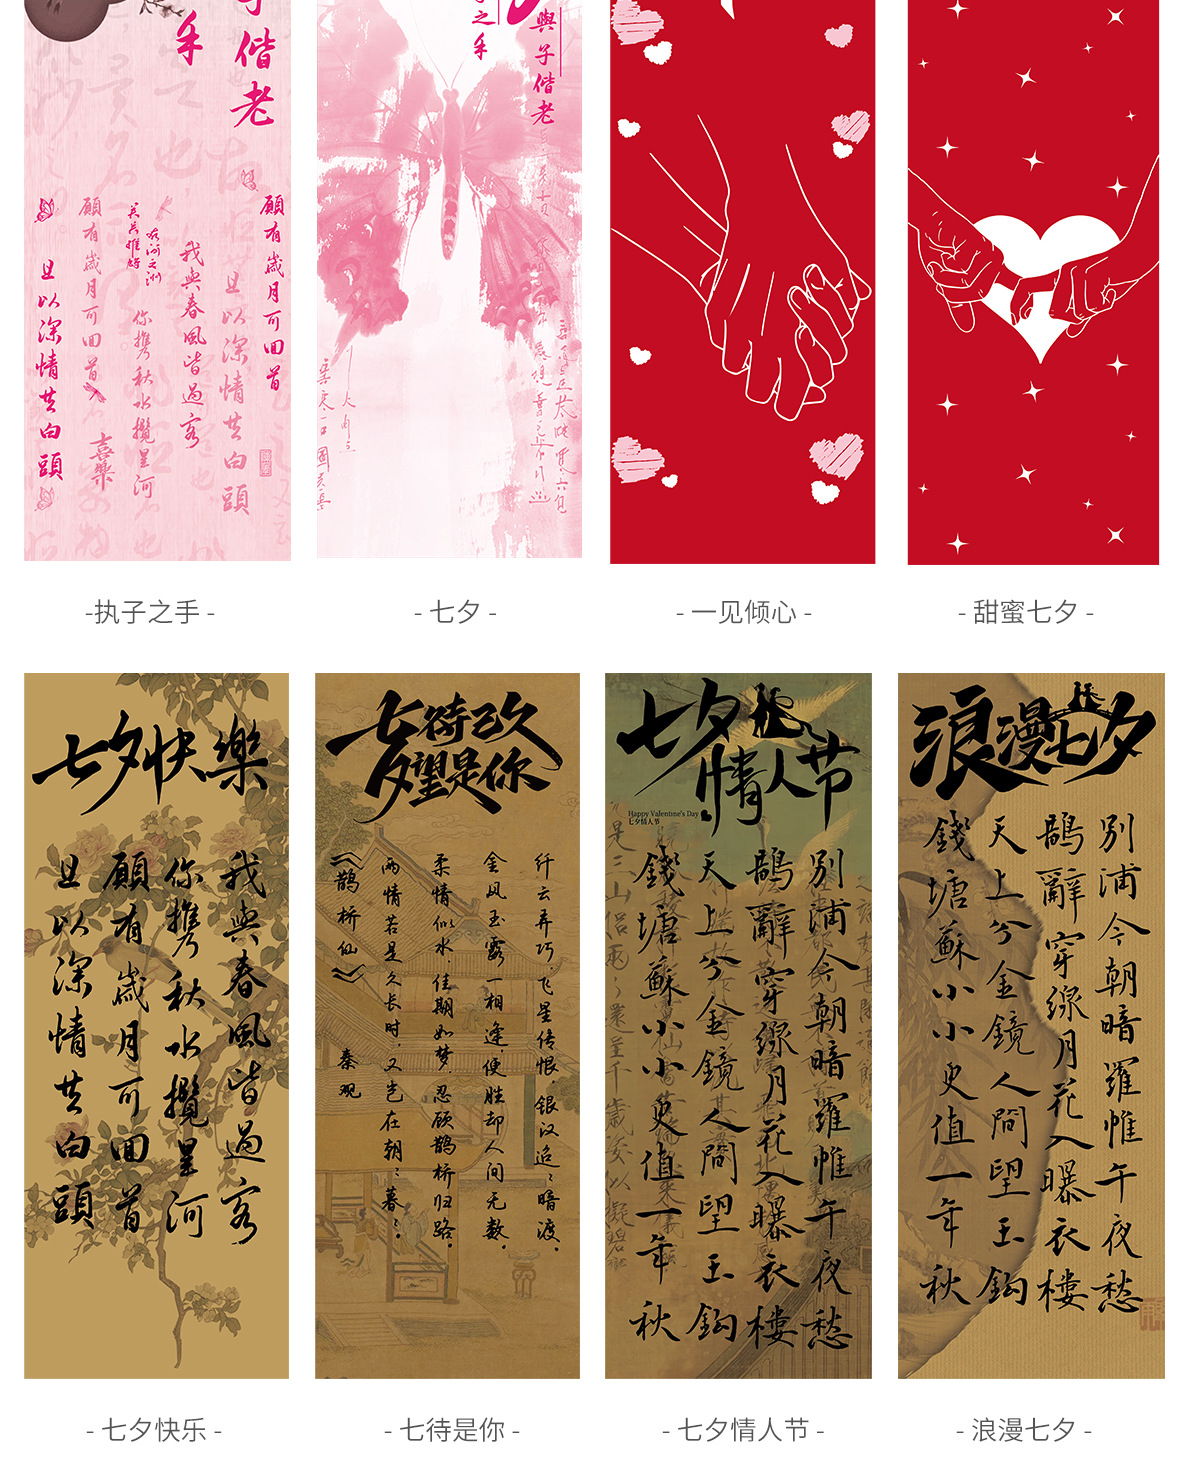 手
子偕老
願有歲月可回首
且以深情共白頭
我與春風皆過客
你携秋水攬星河
關關雎鳩
在河之洲
願有歲月可回首
喜樂
且以深情共白頭
-执子之手 -
與子偕老
子之手
- 七夕 -
- 一见倾心 -
- 甜蜜七夕 -
七夕快樂
我與春風皆過客
你携秋水攬星河
願有歲月可回首
且以深情共白頭
- 七夕快乐 -
七待已久
夕望是你
纤云弄巧，飞星传恨，银汉迢迢暗渡。
金风玉露一相逢，便胜却人间无数。
柔情似水，佳期如梦，忍顾鹊桥归路。
两情若是久长时，又岂在朝朝暮暮。
《鹊桥仙》 秦观
- 七待是你 -
七夕
情人节
Happy Valentine's Day
七夕情人节
别浦今朝暗羅帷午夜愁
鵲辭穿線月花入曝衣樓
天上兮金鏡人間望玉鈎
錢塘蘇小小更值一年秋
- 七夕情人节 -
浪漫七夕
别浦今朝暗羅帷午夜愁
鵲辭穿線月花入曝衣樓
天上兮金鏡人間望玉鈎
錢塘蘇小小更值一年秋
- 浪漫七夕 -